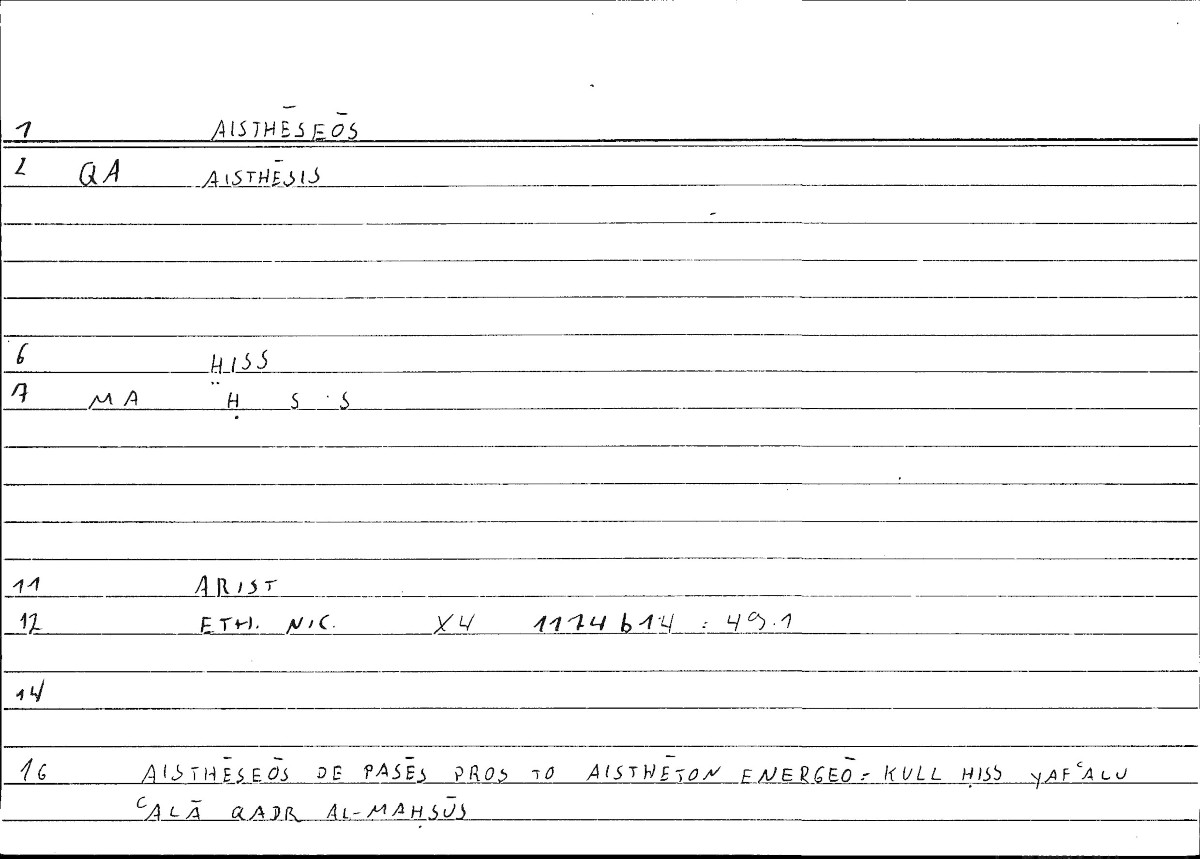 1 AISTHĒSEŌS
2 QA AISTHĒSIS
6 ḤISS
7 MA Ḥ S S
11 ARIST
12 ETH. NIC. X4 1174b14 : 49.1
14
16 AISTHĒSEŌS DE PASĒS PROS TO AISTHĒTON ENERGEŌ = KULL ḤISS YAFᶜALU
ᶜALĀ QADR AL-MAḤSŪS